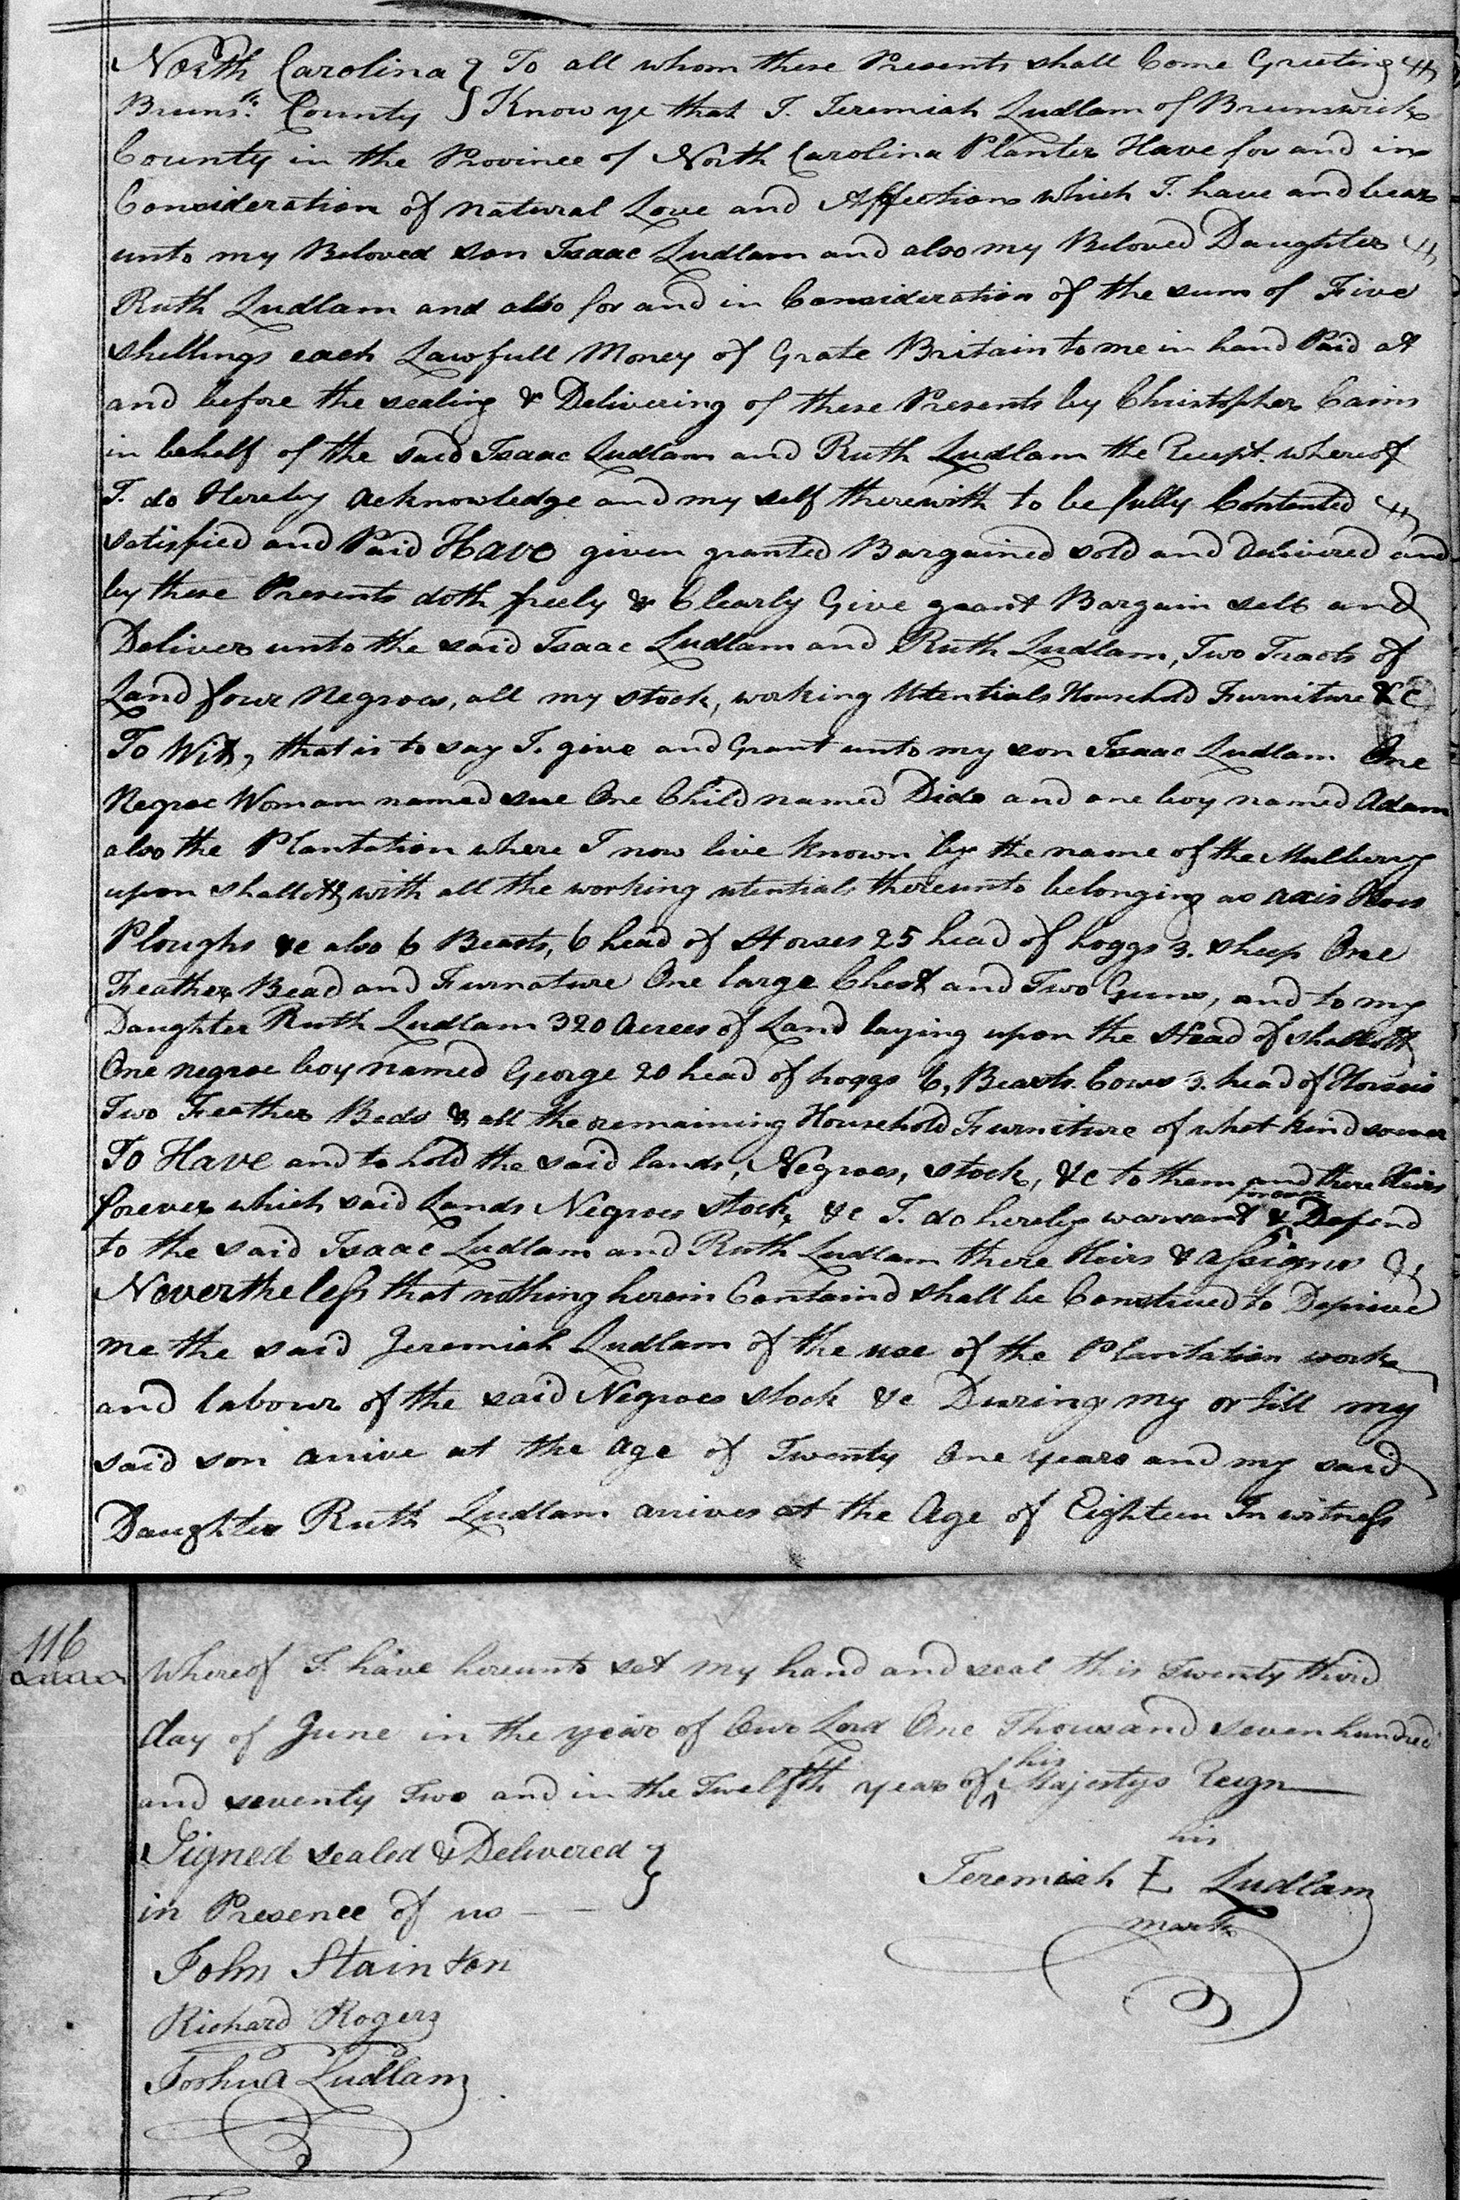 North Carolina } To all whom these Presents shall Come Greeting
Brunsk. County } Know ye that I. Jeremiah Ludlam of Brunswick
County in the Province of North Carolina Planter Have for and in
Consideration of natural Love and Affection which I. have and bear
unto my Beloved son Isaac Ludlam and also my Beloved Daughter
Ruth Ludlam and also for and in Consideration of the sum of Five
shillings each Lawfull Money of Grate Britain to me in hand Paid at
and before the sealing & Delivering of these Presents by Christopher Cains
in behalf of the said Isaac Ludlam and Ruth Ludlam the Receipt. whereof
I. do Hereby acknowledge and my self therewith to be fully Contented
satisfied and Paid Have given granted Bargained sold and Delivered and
by these Presents doth freely & Clearly Give grant Bargain sell and
Deliver unto the said Isaac Ludlam and Ruth Ludlam, Two Tracts of
Land four Negroes, all my stock, working Utentials Household Furniture &c
To Wit, that is to say I. give and Grant unto my son Isaac Ludlam One
Negroe Womam named sue One Child named Dido and one boy named Adam
also the Plantation where I now live Known by the name of the Mulberry
upon shallotty with all the working utentials thereunto belonging as axis Hows
Ploughs &c also 6 Beasts, 6 head of Horses 25 head of hoggs 3. sheep One
Feather Bead and Furnature One large Chest and Two Guns, and to my
Daughter Ruth Ludlam 320 Acrees of Land laying upon the Head of shallotty
One negroe boy named George 20 head of hoggs 6, Beasts. Cows 3. head of Horses
Two Feather Beds & all the remaining Household Furniture of whet kind soever
To Have and to hold the said lands, Negroes, stock, &c to them and there Heirs
forever which said Lands Negroes stock, &c I. do hereby warrant forever & Defend
to the said Isaac Ludlam and Ruth Ludlam there Heirs & assigns &c
Nevertheless that nothing herein Containd shall be Construed to Deprive
me the said Jeremiah Ludlam of the use of the Plantation work
and labour of the said Negroes stock &c During my or till my
said son arrive at the age of Twenty One years and my said
Daughter Ruth Ludlam arrives at the Age of Eighteen In witness
116
Whereof I. have hereunto set my hand and seal this Twenty third
day of June in the year of Our Lord One Thousand seven hundred
and seventy Two and in the Twelfth year of his Majestys Reign
Signed sealed & Delivered }
in Presence of us
his
Jeremiah L Ludlam
mark
John Stainton
Richard Rogers
Joshua Ludlam